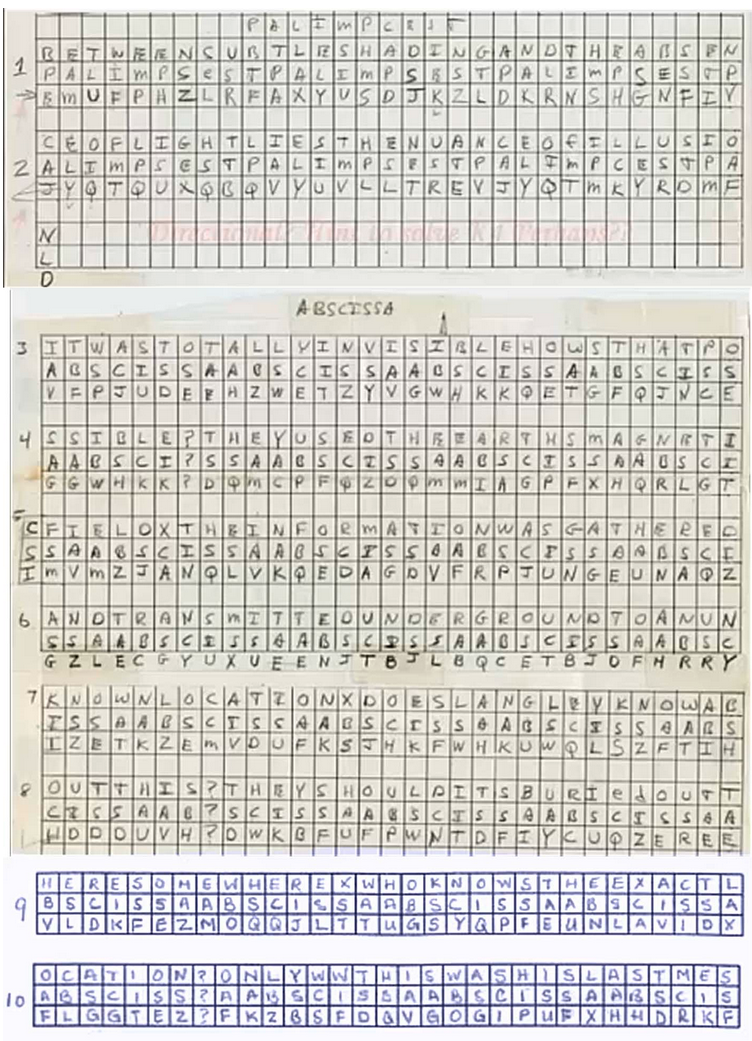 P A L I m P C E S T
1
B E T W E E N S U B T L E S H A D I N G A N D T H E A B S E N
P A L I m P S e S T P A L I m P S E S T P A L I m P S E S T P
E m U F P H Z L R F A X Y U S D J K Z L D K R N S H G N F I V
2
C E O F L I G H T L I E S T H E N U A N C E O F I L L U S I O
A L I m P S E S T P A L I m P S E S T P A L I m P C E S T P A
J Y Q T Q U X Q B Q V Y U V L L T R E V J Y Q T m K Y R D m F
Directional? Hint to solve K4 Perhaps??
N
L
D
ABSCISSA
3
I T W A S T O T A L L Y I N V I S I B L E H O W S T H A T P O
A B S C I S S A A B S C I S S A A B S C I S S A A B S C I S S
V F P J U D E E H Z W E T Z Y V G W H K K Q E T G F Q J N C E
4
S S I B L E ? T H E Y U S E D T H E E A R T H S m A G N E T I
A A B S C I ? S S A A B S C I S S A A B S C I S S A A B S C I
G G W H K K ? D Q m C P F Q Z D Q m m I A G P F X H Q R L G T
5
C F I E L D X T H E I N F O R m A T I O N W A S G A T H E R E D
S S A A B S C I S S A A B S C I S S A A B S C I S S A A B S C I
I m V m Z J A N Q L V K Q E D A G D V F R P J U N G E U N A Q Z
6
A N D T R A N S m I T T E D U N D E R G R O U N D T O A N U N
S S A A B S C I S S A A B S C I S S A A B S C I S S A A B S C
G Z L E C G Y U X U E E N J T B J L B Q C E T B J D F H R R Y
7
K N O W N L O C A T I O N X D O E S L A N G L E Y K N O W A B
I S S A A B S C I S S A A B S C I S S A A B S C I S S A A B S
I Z E T K Z E m V D U F K S J H K F W H K U W Q L S Z F T I H
8
O U T T H I S ? T H E Y S H O U L D I T S B U R I e d O U T T
C I S S A A B ? S C I S S A A B S C I S S A A B S C I S S A A
H D D D U V H ? D W K B F U F P W N T D F I Y C U Q Z E R E E
9
H E R E S O M E W H E R E X W H O K N O W S T H E E X A C T L
B S C I S S A A B S C I S S A A B S C I S S A A B S C I S S A
V L D K F E Z M O Q Q J L T T U G S Y Q P F E U N L A V I D X
10
O C A T I O N ? O N L Y W W T H I S W A S H I S L A S T M E S
A B S C I S S ? A A B S C I S S A A B S C I S S A A B S C I S
F L G G T E Z ? F K Z B S F D Q V G O G I P U F X H H D R K F